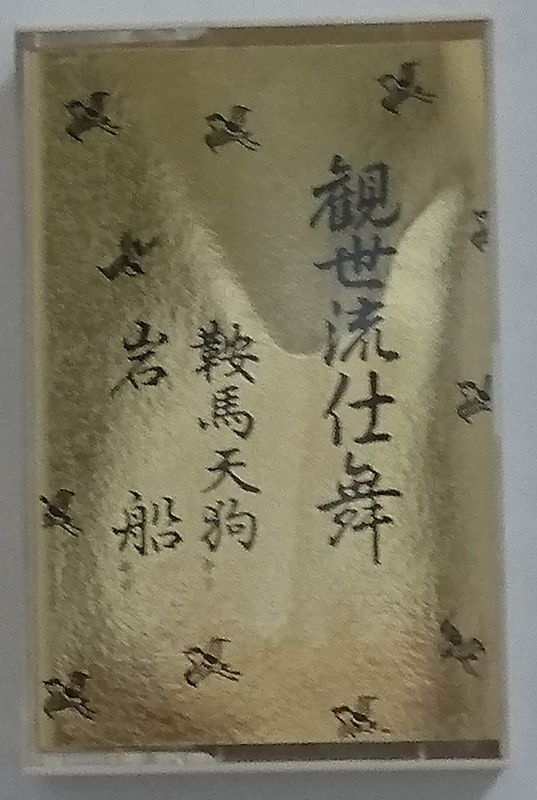 観世流仕舞
鞍馬天狗
岩船